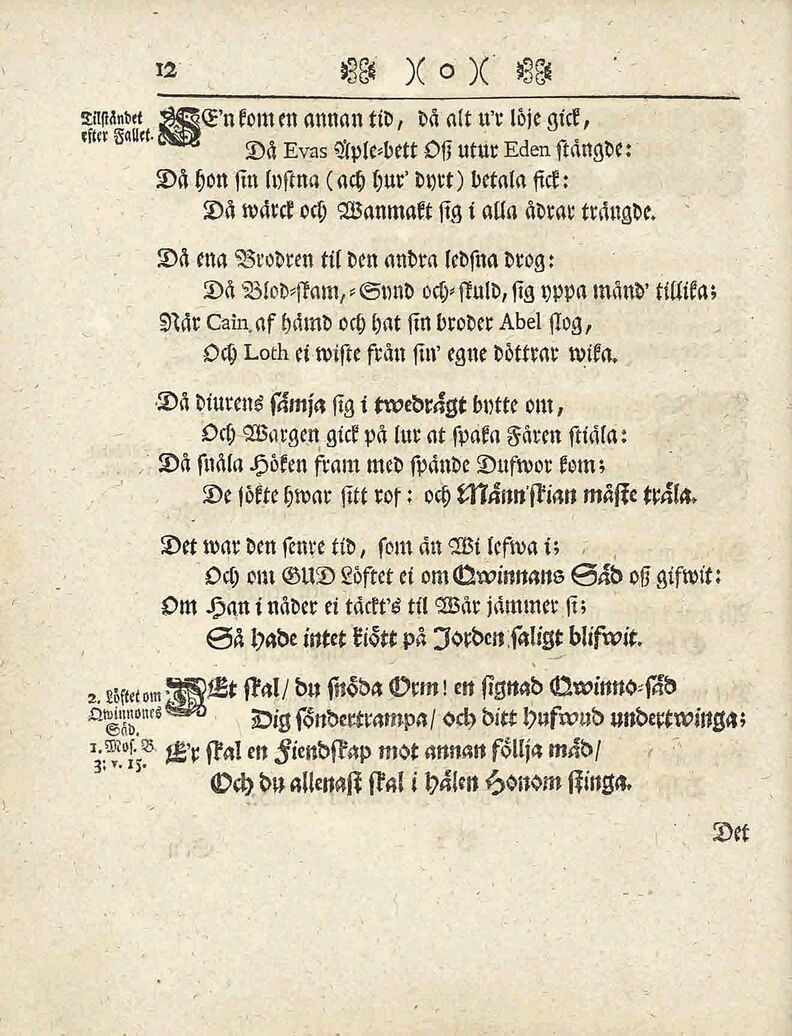 12 )( o )(
Tilståndet
efter Fallet.
SE'n kom en annan tid, då alt u'r löje gick,
Då Evas Äple-bett Oß utur Eden stängde:
Då hon sin lystna (ach hur' dyrt) betala fick:
Då wärck och Wanmakt sig i alla ådrar trängde.
Då ena Brodren til den andra ledsna drog:
Då Blod-skam, -Synd och-skuld, sig yppa månd' tillika;
När Cain af hämd och hat sin broder Abel slog,
Och Loth ei wiste från sin' egne döttrar wika.
Då diurens sämja sig i twedrägt bytte om,
Och Wargen gick på lur at spaka Fåren stiäla:
Då snåla Höken fram med spände Dufwor kom;
De sökte hwar sitt rof: och Männ'skian måste träla.
Det war den senre tid, som än Wi lefwa i;
Och om GUD Löftet ei om Qwinnans Säd oß gifwit:
Om Han i nåder ei täckt's til Wår jämmer si;
Så hade intet kiött på Jorden saligt blifwit.
2. Löftet om
Qwinnones
Säd.
1. Mos. B.
3: v. 15.
DEt skal/ du snöda Orm! en signad Qwinno-säd
Dig söndertrampa/ och ditt hufwud undertwinga;
E'r skal en Fiendskap mot annan föllja mäd/
Och du allenast skal i hälen Honom stinga.
Det